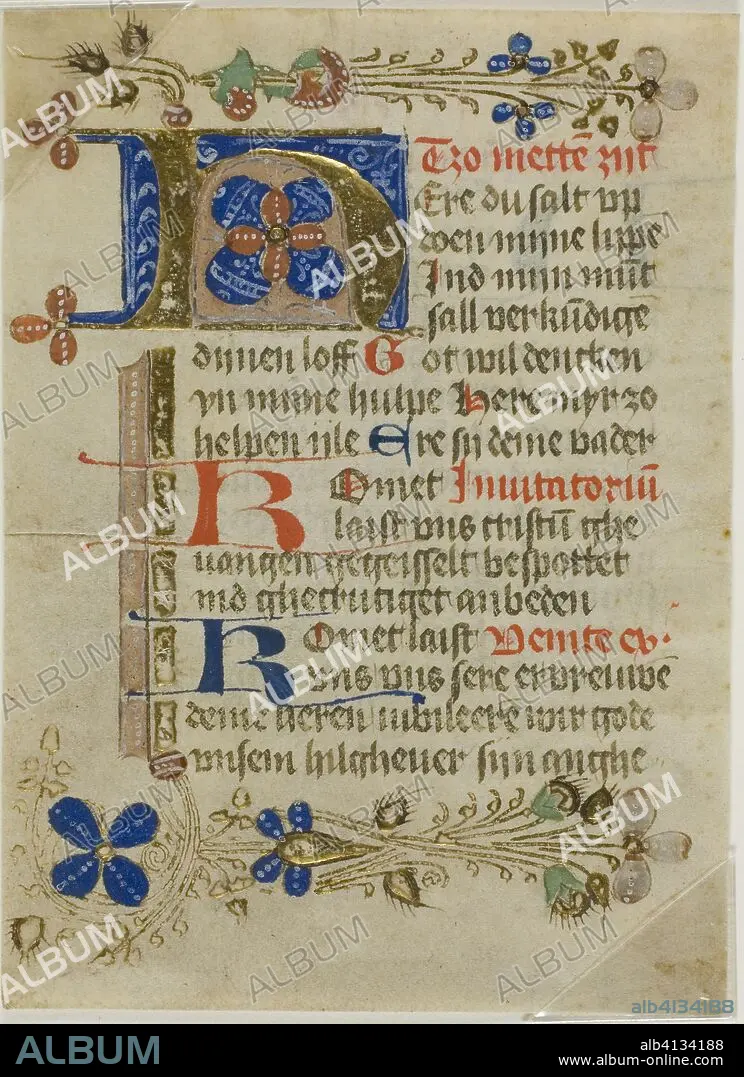 H
Tzo mettē zijt
Ere du salt vp
doen mijne lippe
Ind mijn mūt
sall verkūdige
dijnen loff Got wil dencken
yn mijne hulpe Here myr zo
helpen ijle Ere sij deme vader
Komet Inuitatoriū
laist vns cristū ghe
uangen gegeisselt bespottet
ind ghecrutziget anbeden
Komet laist Venite ex.
vns vns sere
deme heren iubileere wir gode
vnsem hilgheuer sijn anghe
ALBUM
alb4134188
ALBUM
alb4134188
www.album-online.com